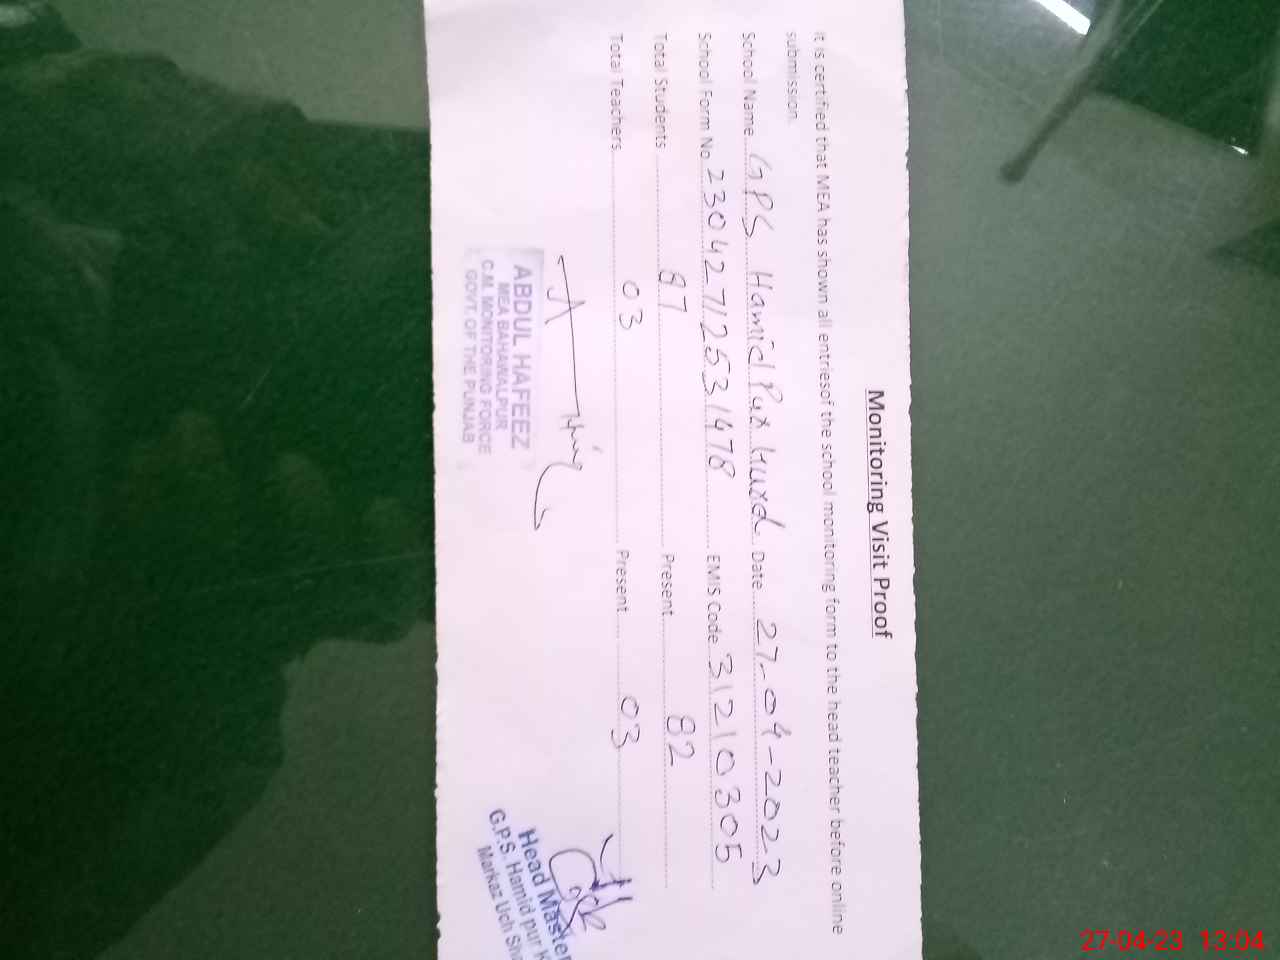 Monitoring Visit Proof
It is certified that MEA has shown all entriesof the school monitoring form to the head teacher before online
submission.
School Name GPS Hamid Pur Khurd Date 27-04-2023
School Form No 23042712531478 EMIS Code 31210305
Total Students 87 Present 82
Total Teachers 03 Present 03
ABDUL HAFEEZ
MEA BAHAWALPUR
C.M. MONITORING FORCE
GOVT. OF THE PUNJAB
Head Master
G.P.S. Hamid pur K
Markaz Uch Sh
27-04-23 13:04